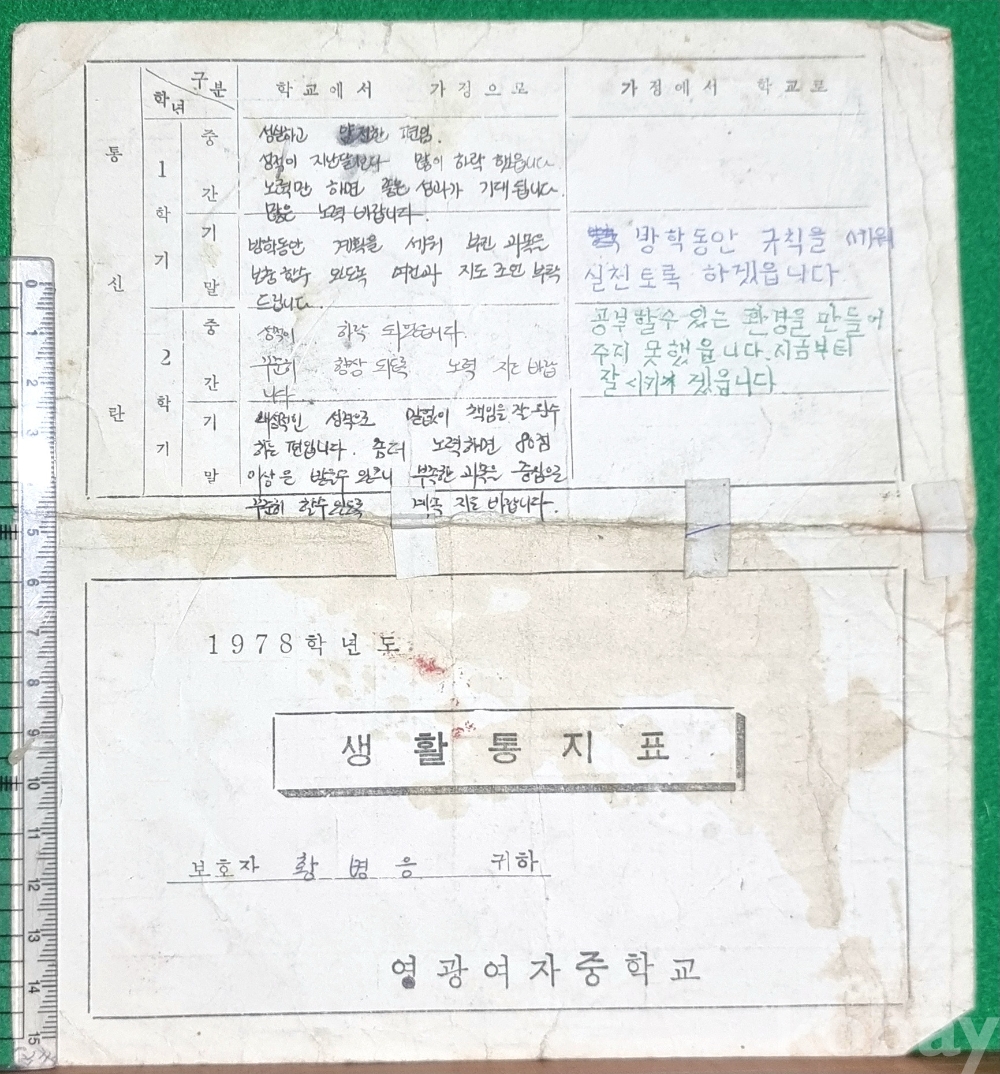 통신란
구분
학년
학교에서 가정으로
가정에서 학교로
1학기
중간
성실하고 얌전한 편임.
성적이 지난달보다 많이 하락 했읍니다
노력만 하면 좋은 성과가 기대 됩니다.
많은 노력 바랍니다.
기말
방학동안 계획을 세워 부진 과목을
보충할수 있도록 여건과 지도 조언 부탁
드립니다.
방학동안 규칙을 세워
실천토록 하겠읍니다.
2학기
중간
성적이 하락 되었습니다.
꾸준히 향상 되도록 노력 지도 바랍
니다.
공부할수 있는 환경을 만들어
주지 못했읍니다. 지금부터
잘 시키겠읍니다
기말
내성적인 성격으로 말없이 책임을 잘 완수
하는 편입니다. 좀더 노력하면 80점
이상은 받을수 있으니 부족한 과목을 중심으로
꾸준히 할수있도록 계속 지도 바랍니다.
1978학년도
생활통지표
보호자 황병응 귀하
영광여자중학교
0
2
3
5
6
7
8
9
10
11
12
13
14
15